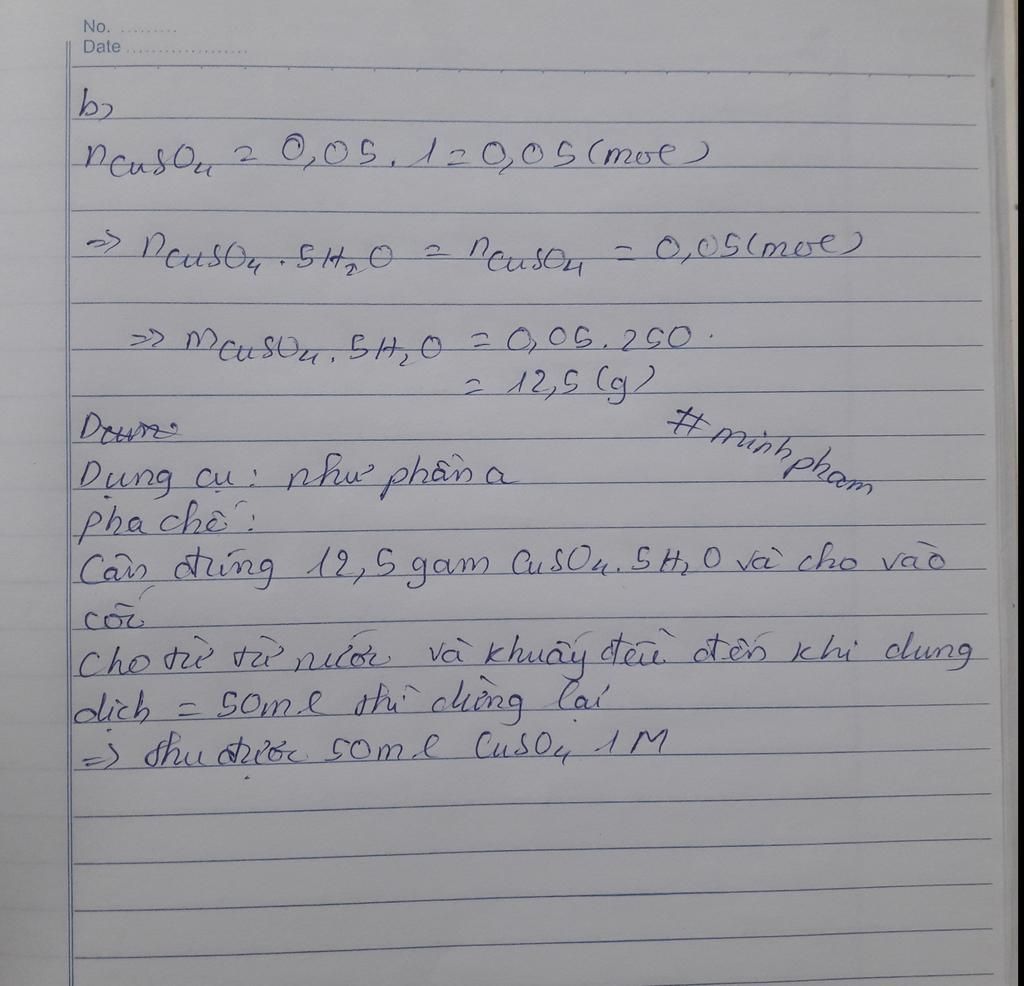 No. .........
Date ...................
b)
nCuSO₄ = 0,05. 1 = 0,05 (mol)
=> nCuSO₄.5H₂O = nCuSO₄ = 0,05 (mol)
=> mCuSO₄.5H₂O = 0,05.250.
= 12,5 (g)
#minhpham
Dụng cụ: như phần a
pha chế:
Cân đúng 12,5 gam CuSO₄.5H₂O và cho vào
cốc
Cho từ từ nước và khuấy đều đến khi dung
dịch = 50ml thì dừng lại
=> thu được 50ml CuSO₄ 1M